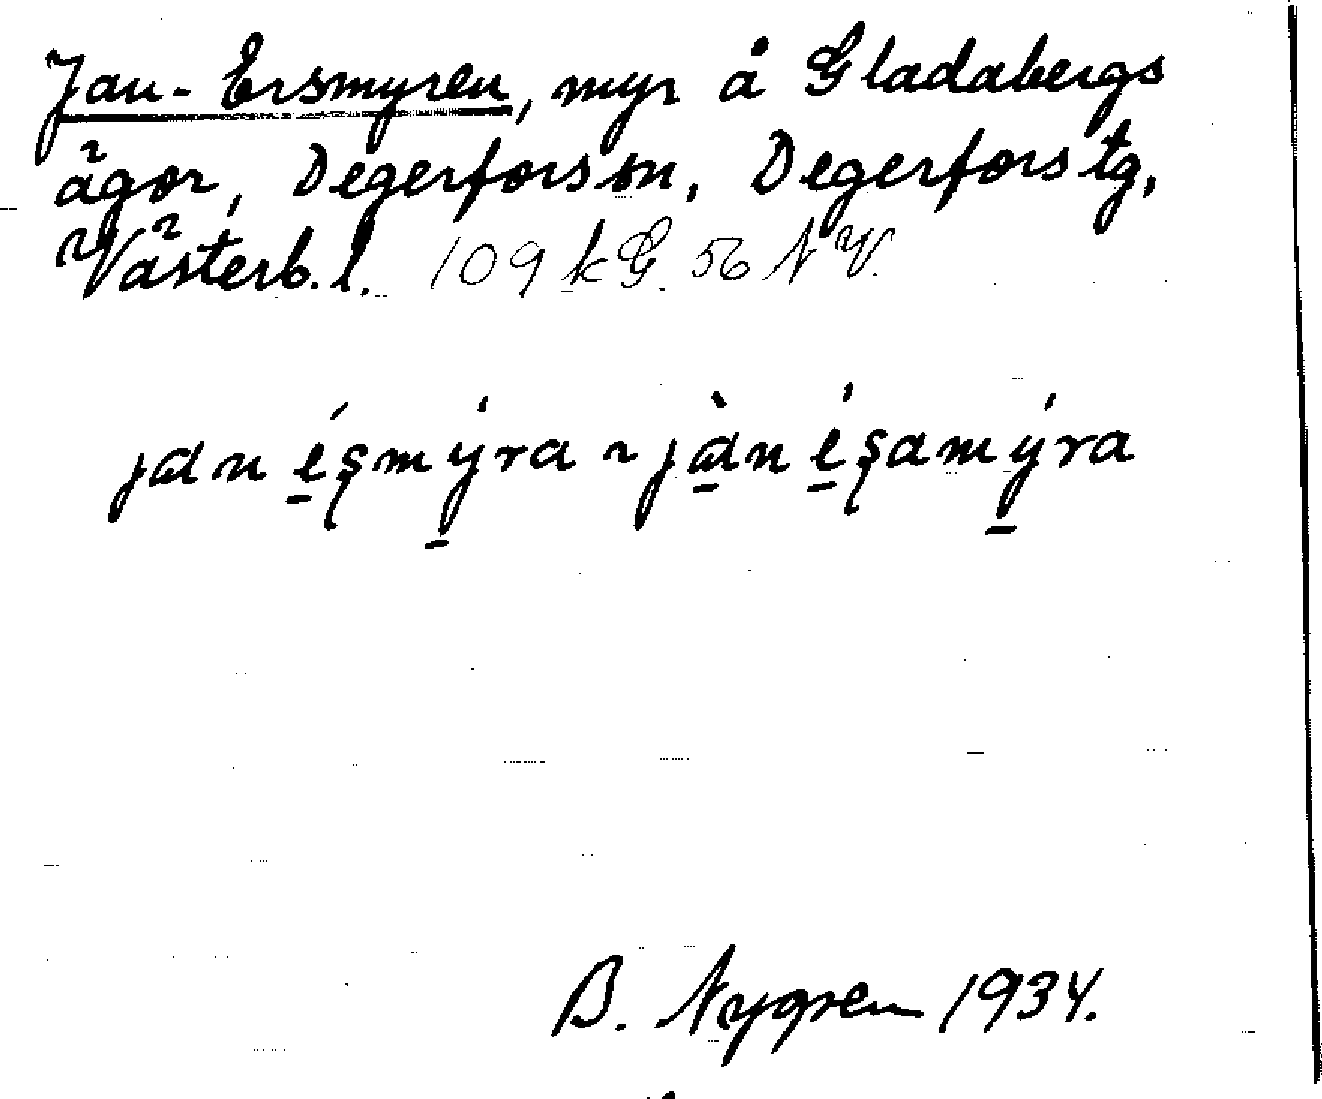 Jan-Ersmyren, myr å Gladabergs
ägor, Degerfors sn, Degerfors tg,
Västerb. l. 109 k G. 56 N V.
jɑn éşmýra ~ jɑ̀n éşamýra
B. Nygren 1934.